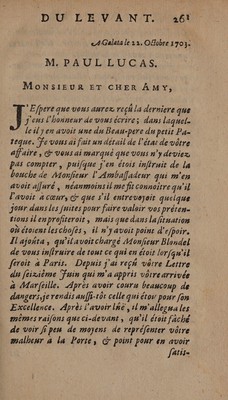 DU LEVANT. 261
A Galata le 22. Octobre 1703.
M. PAUL LUCAS.
MONSIEUR ET CHER AMY,
J'Espere que vous aurez reçû la derniere que
j'eus l'honneur de vous écrire; dans laquel-
le il y en avoit une du Beau-pere du petit Pa-
teque. Je vous ai fait un détail de l'état de vôtre
affaire, & vous ai marqué que vous n'y deviez
pas compter, puisque j'en étois instruit de la
bouche de Monsieur l'Ambassadeur qui m'en
avoit assuré, néanmoins il me fit connoître qu'il
l'avoit à cœur, & que s'il entrevoyoit quelque
jour dans les suites pour faire valoir vos préten-
tions il en profiteroit, mais que dans la situation
où étoient les choses, il n'y avoit point d'espoir.
Il ajoûta, qu'il avoit chargé Monsieur Blondel
de vous instruire de tout ce qui en étoit lorsqu'il
seroit à Paris. Depuis j'ai reçû vôtre Lettre
du seiziéme Juin qui m'a appris vôtre arrivée
à Marseille. Après avoir couru beaucoup de
dangers, je rendis aussi-tôt celle qui étoit pour son
Excellence. Après l'avoir lûë, il m'allegua les
mêmes raisons que ci-devant, qu'il étoit fâché
de voir si peu de moyens de représenter vôtre
malheur à la Porte, & point pour en avoir
satis-